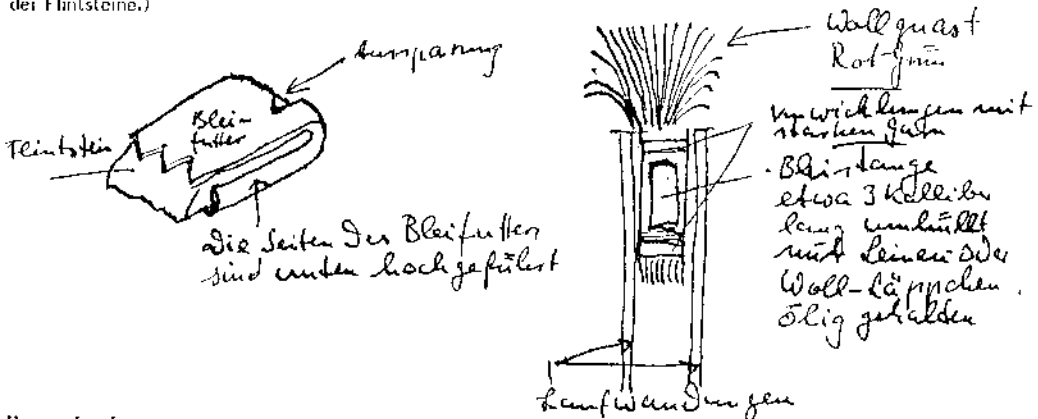 der Flintsteine.)
Aussparung
Flintstein
Blei-
futter
Die Seiten des Bleifutters
sind unten hochgeführt
Wollquast
Rot-grün
Umwicklungen mit
starken Garn
Bleistange
etwa 3 Kaliber
lang umhüllt
mit Leinen oder
Woll-Läppchen.
ölig gehalten
Laufwandungen